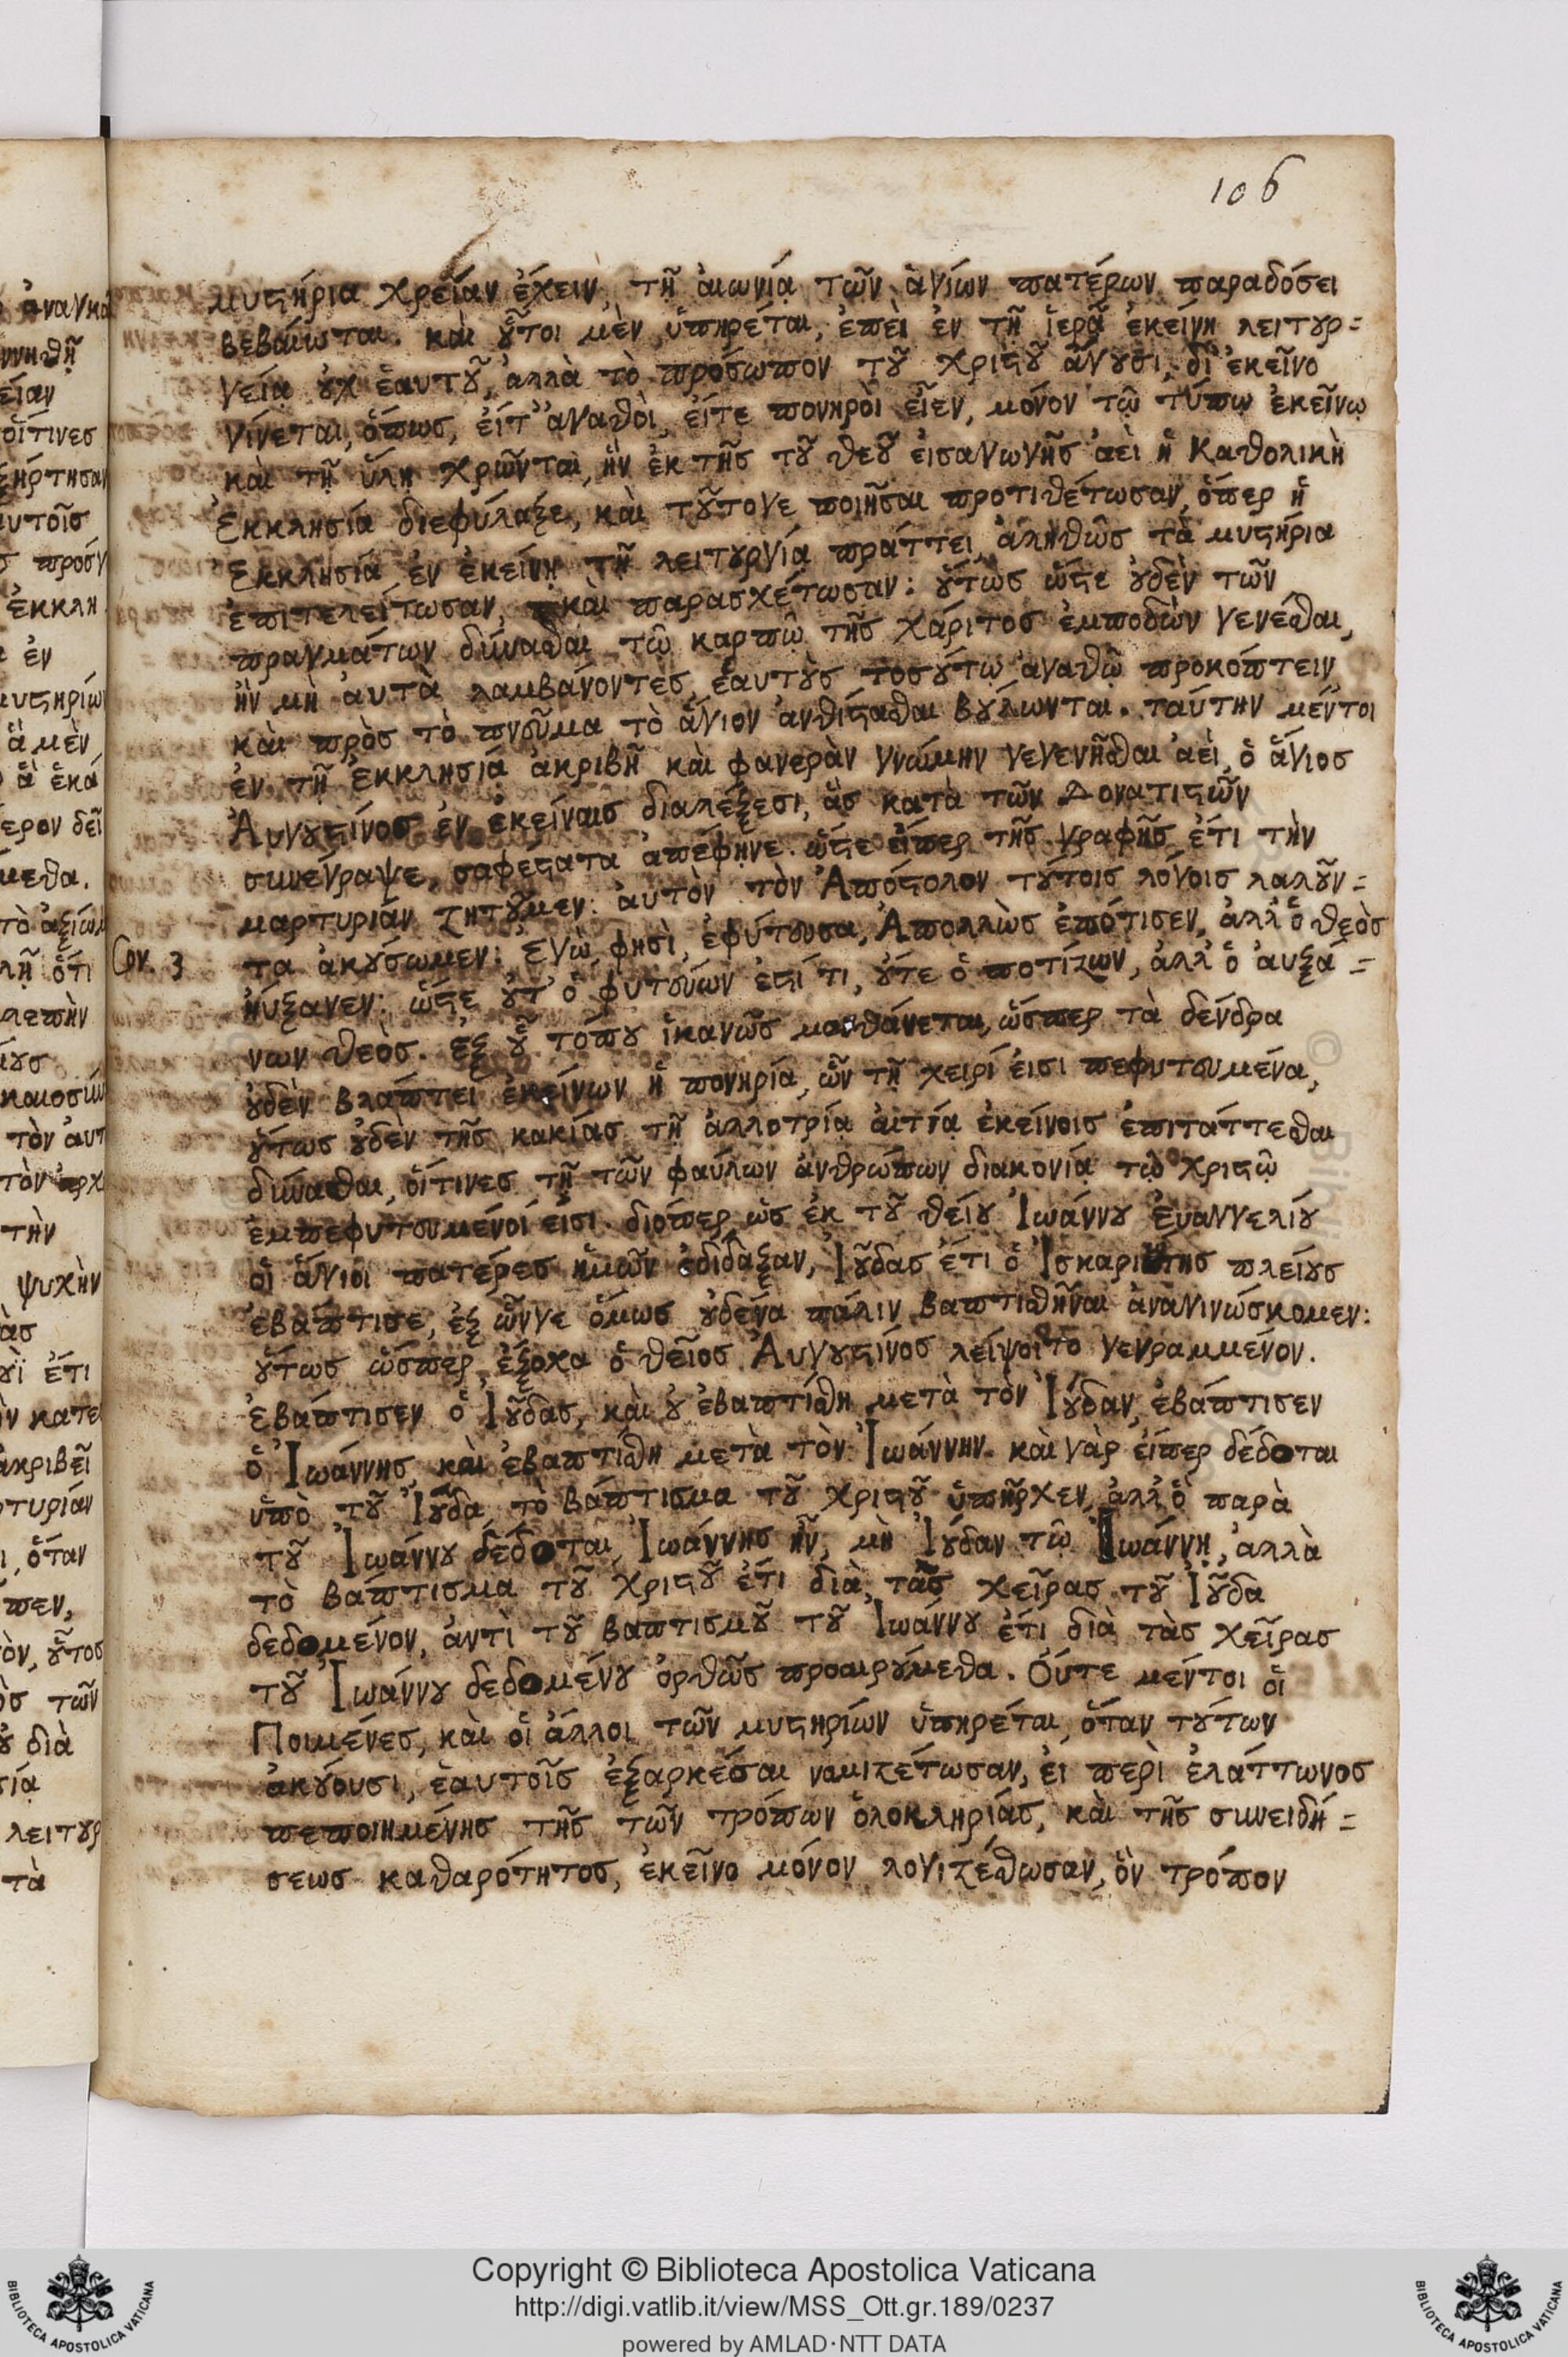 106
μυςήρια χρείαν ἔχειν, τῇ ἀιωνίᾳ τῶν ἁγίων πατέρων παραδόσει
βεβαίωται. καὶ ȣ̓͂τοι μὲν ὑπηρέται, ἐπεὶ ἐν τῇ ἱερᾷ ἐκείνη λειτȣρ=
γείᾳ ȣ̓χ ἑαυτȣ͂, ἀλλὰ τὸ πρόσωπον τȣ͂ χριςȣ͂ ἄγȣσι, δἰ ἐκεῖνο
γίνεται, ὅπως, εἴτ' ἀγαθοὶ, εἴτε πονηροὶ εἶεν, μόνον τῷ τύπῳ ἐκείνῳ
καὶ τῇ ὕλῃ χρῶνται, ἣν ἐκ τῆς τȣ͂ θεȣ͂ εἰσαγωγῆς ἀεὶ ἡ Καθολικὴ
Ἐκκλησία διεφύλαξε, καὶ τȣ͂τογε ποιῆσαι προτιθέτωσαν, ὅπερ ἡ
Ἐκκλησία ἐν ἐκείνῃ τῇ λειτȣργίᾳ πράττει, ἀληθῶς τὰ μυςήρια
ἐπιτελείτωσαν, καὶ παρασχέτωσαν: ȣ̔́τως ὥςε ȣ̓δὲν τῶν
πραγμάτων δύναθαι τῷ καρπῷ τῆς χάριτος ἐμποδὼν γενέθαι,
ἢν μὴ ἀυτὰ λαμβάνοντες, ἑαυτȣ̀ς τοσȣ́τῳ ἀγαθῷ προκόπτειν
καὶ πρὸς τὸ πνεῦμα τὸ ἅγιον ἀνθίςαθαι βȣ́λωνται. ταύτην μέντοι
ἐν τῇ ἐκκλησίᾳ ἀκριβῆ καὶ φανερὰν γνώμην γεγενῆθαι ἀεὶ, ὁ ἅγιος
Ἀυγȣςίνος ἐν ἐκείναις διαλέξεσι, ἃς κατὰ τῶν Δονατιςῶν
συνέγραψε, σαφέςατα ἀπέφηνε. ὥςε εἴπερ τῆς γραφῆς ἔτι τὴν
μαρτυρίαν ζητȣ͂μεν: ἀυτὸν τὸν Ἀπόςολον τȣ́τοις λόγοις λαλȣ͂ν=
τα ἀκȣ́σωμεν: ἐγὼ, φησὶ, ἐφύτευσα, Ἀπολλὼς ἐπότισεν, ἀλλ' ὁ θεὸς
Cor. 3
ηὔξανεν: ὥςε ȣ̓́τ' ὁ φυτεύων ἐςί τι, ȣ̓́τε ὁ ποτίζων, ἀλλ' ὁ ἀυξά=
νων θεὸς. ἐξ ȣ̔͂ τόπȣ ἱκανῶς μανθάνεται, ὥσπερ τὰ δένδρα
ȣ̓δὲν βλάπτει ἐκείνων ἡ πονηρία, ὧν τῇ χειρί εἰσι πεφυτευμένα,
ȣ̔́τως ȣ̓δὲν τῆς κακίας τῇ ἀλλοτρίᾳ αἰτίᾳ ἐκείνοις ἐπιτάττεθαι
δύναθαι, οἵτινες τῇ τῶν φαύλων ἀνθρώπων διακονίᾳ τῷ χριςῷ
ἐμπεφυτευμένοί εἰσι. διόπερ, ὡς ἐκ τȣ͂ θείȣ Ἰωάννȣ Ἐυαγγελίȣ
οἱ ἅγιοι πατέρες ἡμῶν ἐδίδαξαν, Ἰȣ͂δας ἔτι ὁ Ἰσκαριώτης πλείȣς
ἐβάπτισε, ἐξ ὧνγε ὅμως ȣ̓δένα πάλιν βαπτιθῆναι ἀναγινώσκομεν:
ȣ̔́τως ὥσπερ ἔξοχα ὁ θεῖος Ἀυγȣςίνος λείψοιτο γεγραμμένον.
ἐβάπτισεν ὁ Ἰȣ͂δας, καὶ ȣ̓ ἐβαπτίθη μετὰ τὸν Ἰȣ́δαν, ἐβάπτισεν
ὁ Ἰωάννης, καὶ ἐβαπτίθη μετὰ τὸν Ἰωάννην. καὶ γὰρ εἴπερ δέδοται
ὑπὸ τȣ͂ Ἰȣ́δα, τὸ βάπτισμα τȣ͂ χριςȣ͂ ὑπῆρχεν, ἀλλ' ὃ παρὰ
τȣ͂ Ἰωάννȣ δέδοται, Ἰωάννης ἦν, μὴ Ἰȣ́δαν τῷ Ἰωάννῃ, ἀλλὰ
τὸ βάπτισμα τȣ͂ χριςȣ͂ ἔτι διὰ τὰς χεῖρας τȣ͂ Ἰȣ͂δα
δεδομένον, ἀντὶ τȣ͂ βαπτισμȣ͂ τȣ͂ Ἰωάννȣ ἔτι διὰ τὰς χεῖρας
τȣ͂ Ἰωάννȣ δεδομένȣ ὀρθῶς προαιρȣ́μεθα. Οὔτε μέντοι οἱ
Ποιμένες, καὶ οἱ ἄλλοι τῶν μυςηρίων ὑπηρέται, ὅταν τȣ́των
ἀκȣ́ουσι, ἑαυτοῖς ἐξαρκέσαι νομιζέτωσαν, ἐι περὶ ἐλάττωνος
πεποιημένης τῆς τῶν τρόπων ὁλοκληρίας, καὶ τῆς συνειδή=
σεως καθαρότητος, ἐκεῖνο μόνον λογιζέθωσαν, ὃν τρόπον
Copyright © Biblioteca Apostolica Vaticana
http://digi.vatlib.it/view/MSS_Ott.gr.189/0237
powered by AMLAD·NTT DATA